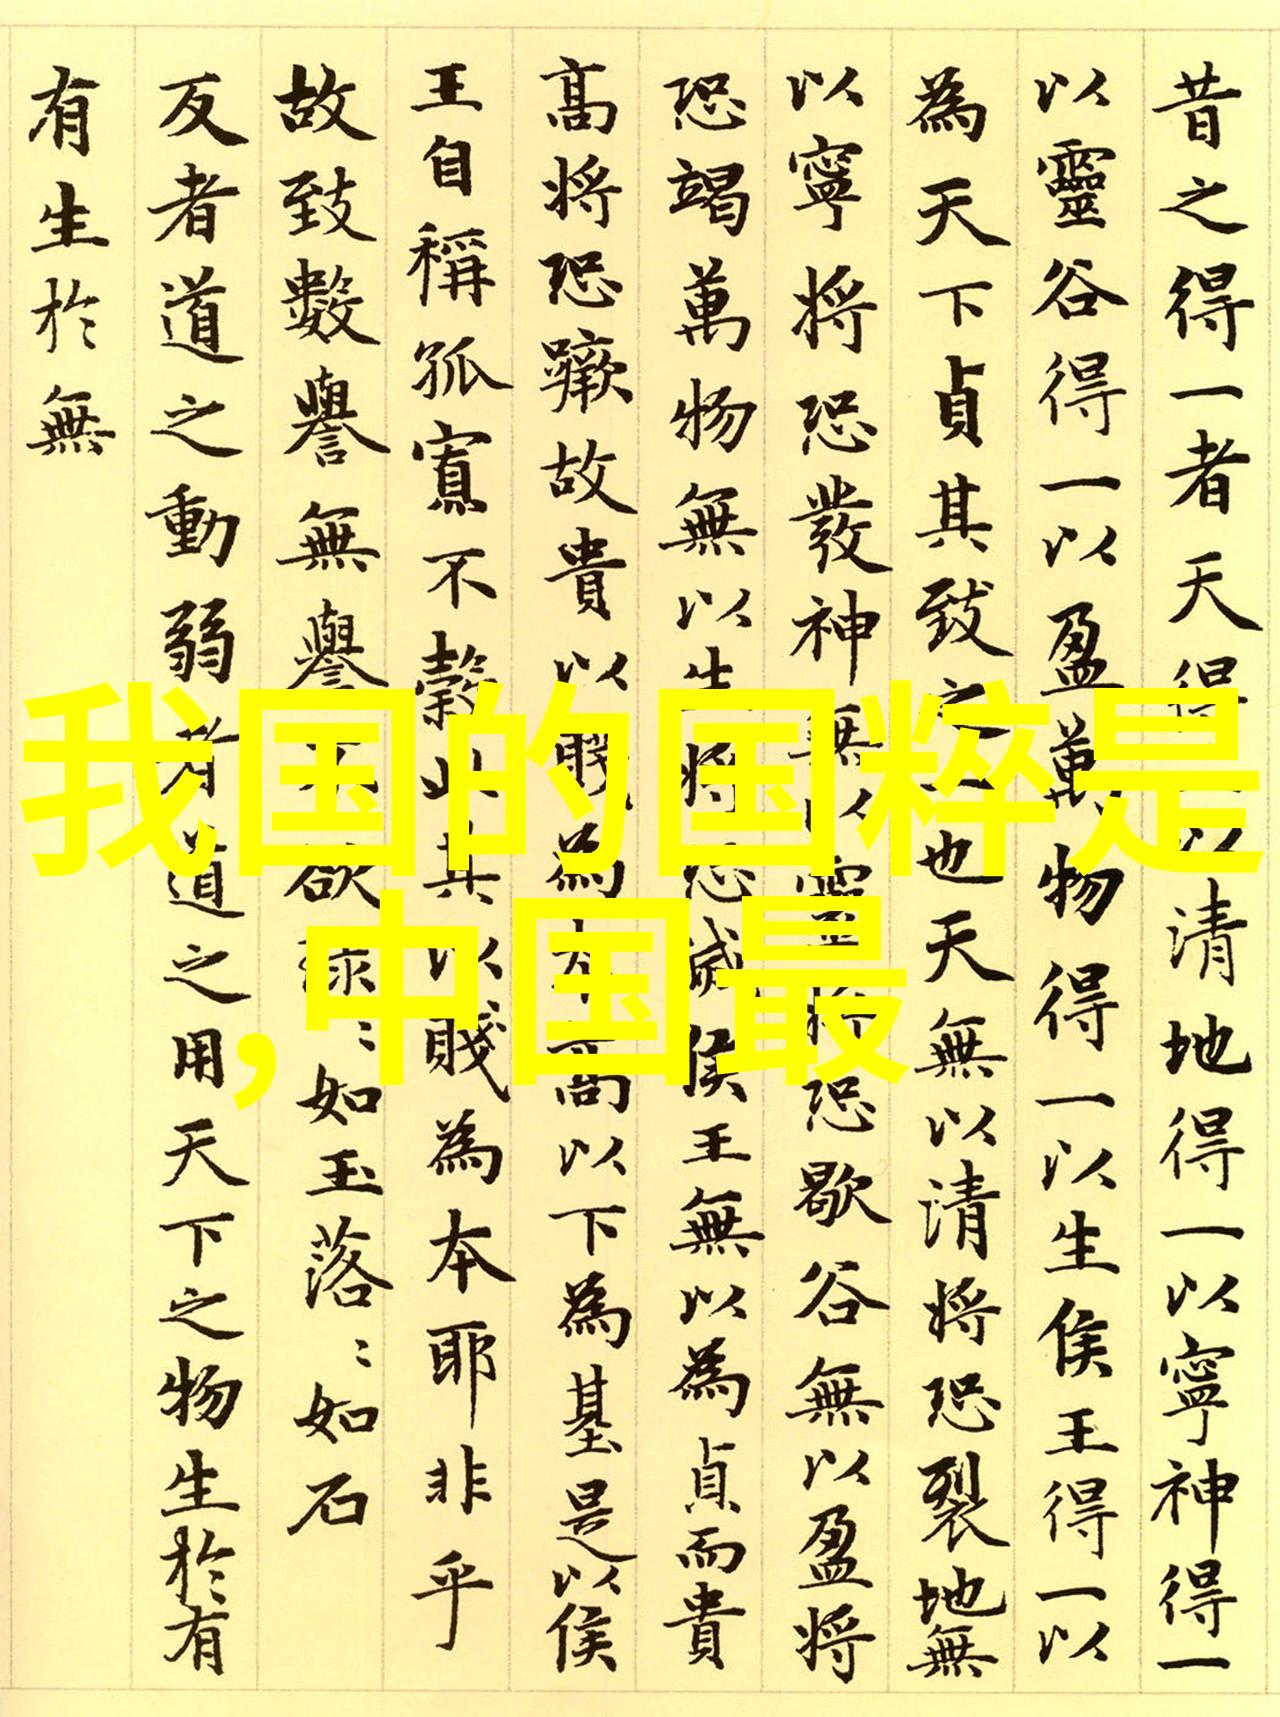 昔之得一者天得一以清地得一以寧神得一
以靈谷得一以盈萬物得一以生侯王得一以
為天下貞其致之一也天無以清将恐裂地無
以寧将恐發神無以靈将恐歇谷無以盈将
恐竭萬物無以生将恐滅侯王無以為貞而貴
髙将恐蹶故貴以賤為本髙以下為基是以侯
王自稱孤寡不穀此其以賤為本耶非乎
故致數譽無譽不欲琭〻如玉落〻如石
反者道之動弱者道之用天下之物生於有
有生於無
我国的国粹是
,中国最